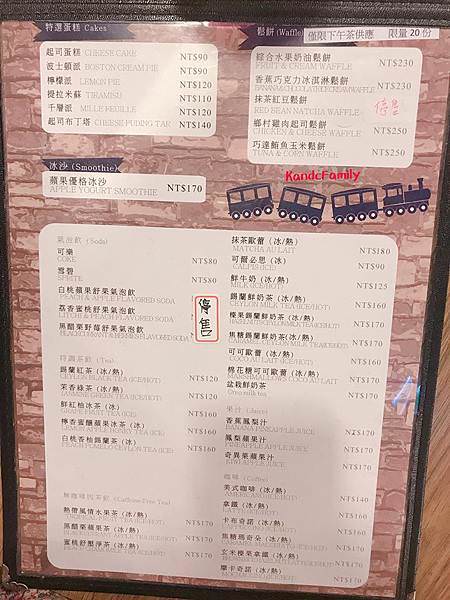 特選蛋糕 Cakes
起司蛋糕 CHEESE CAKE NT$90
波士頓派 BOSTON CREAM PIE NT$90
檸檬派 LEMON PIE NT$120
提拉米蘇 TIRAMISU NT$110
千層派 MILLE FEUILLE NT$120
起司布丁塔 CHEESE PUDING TAR NT$140
冰沙 (Smoothie)
蘋果優格冰沙 NT$170
APPLE YOGURT SMOOTHIE
鬆餅 (Waffle) 僅限下午茶供應 限量 20 份
綜合水果奶油鬆餅 NT$230
FRUIT & CREAM WAFFLE
香蕉巧克力冰淇淋鬆餅 NT$230
BANANA&CHOCOLATE ICE CREAM WAFFLE
抹茶紅豆鬆餅 停售
RED BEAN MATCHA WAFFLE
鄉村雞肉起司鬆餅 NT$250
CHICKEN & CHEESE WAFFLE
巧達鮪魚玉米鬆餅 NT$250
TUNA & CORN WAFFLE
KandcFamily
氣泡飲 (Soda)
可樂 NT$80
COKE
雪碧 NT$80
SPRITE
白桃蘋果舒果氣泡飲
PEACH & APPLE FLAVORED SODA
荔香蜜桃舒果氣泡飲
LITCHI & PEACH FLAVORED SODA
黑醋栗野莓舒果氣泡飲
BLACKCURRANT & BERRIES FLAVORED SODA
停售
特調茶飲 (Tea)
錫蘭紅茶 (冰/熱) NT$120
CEYLON BLACK TEA (ICE/HOT)
茉香綠茶 (冰/熱) NT$120
JASMINE GREEN TEA (ICE/HOT)
鮮紅柚冰茶 (冰) NT$160
GRAPE FRUIT TEA (ICE)
檸香蜜釀蘋果冰茶 (冰) NT$160
LEMON APPLE HONEY TEA (ICE)
白桃香柚錫蘭茶 (冰) NT$160
PEACH POMELO CEYLON TEA (ICE)
無咖啡因茶飲 (Caffeine-Free Tea)
熱情風情水果茶 (冰/熱) NT$170
黑醋栗蘋果茶 (冰/熱) NT$170
蜜桃舒壓淨茶 (冰/熱) NT$170
抹茶歐蕾 (冰/熱) NT$180
MATCHA AU LAIT
可爾必思 (冰) NT$90
CALPIS (ICE)
鮮牛奶 (冰/熱) NT$125
MILK (ICE/HOT)
錫蘭鮮奶茶 (冰/熱) NT$160
CEYLON MILK TEA (ICE/HOT)
榛果錫蘭鮮奶茶 (冰/熱) NT$170
HAZELNUT CEYLON MILK TEA (ICE/HOT)
焦糖錫蘭鮮奶茶 (冰/熱) NT$170
CARAMEL CEYLON MILK TEA (ICE/HOT)
可可歐蕾 (冰/熱) NT$160
COCO AU LAIT (ICE/HOT)
棉花糖可可歐蕾 (冰/熱) NT$170
MARSHMALLOWS COCO AU LAIT
盆栽鮮奶茶 NT$170
Oreo milk tea
果汁 (Juice)
香蕉鳳梨汁 NT$170
BANANA PINEAPPLE JUICE
鳳梨蘋果汁 NT$170
PINEAPPLE APPLE JUICE
奇異果蘋果汁 NT$170
KIWI APPLE JUICE
咖啡 (Coffee)
美式咖啡 (冰/熱) NT$140
AMERICANO (ICE/HOT)
拿鐵 (冰/熱) NT$160
LATTE (ICE/HOT)
卡布奇諾 (冰/熱) NT$160
焦糖瑪奇朵 (冰/熱) NT$170
玄米榛果拿鐵 (冰/熱) NT$170
摩卡奇諾 (冰/熱) NT$170